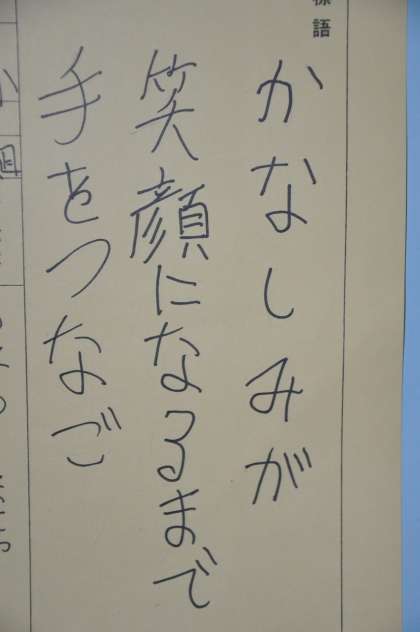 標語
かなしみが
笑顔になるまで
手をつなご